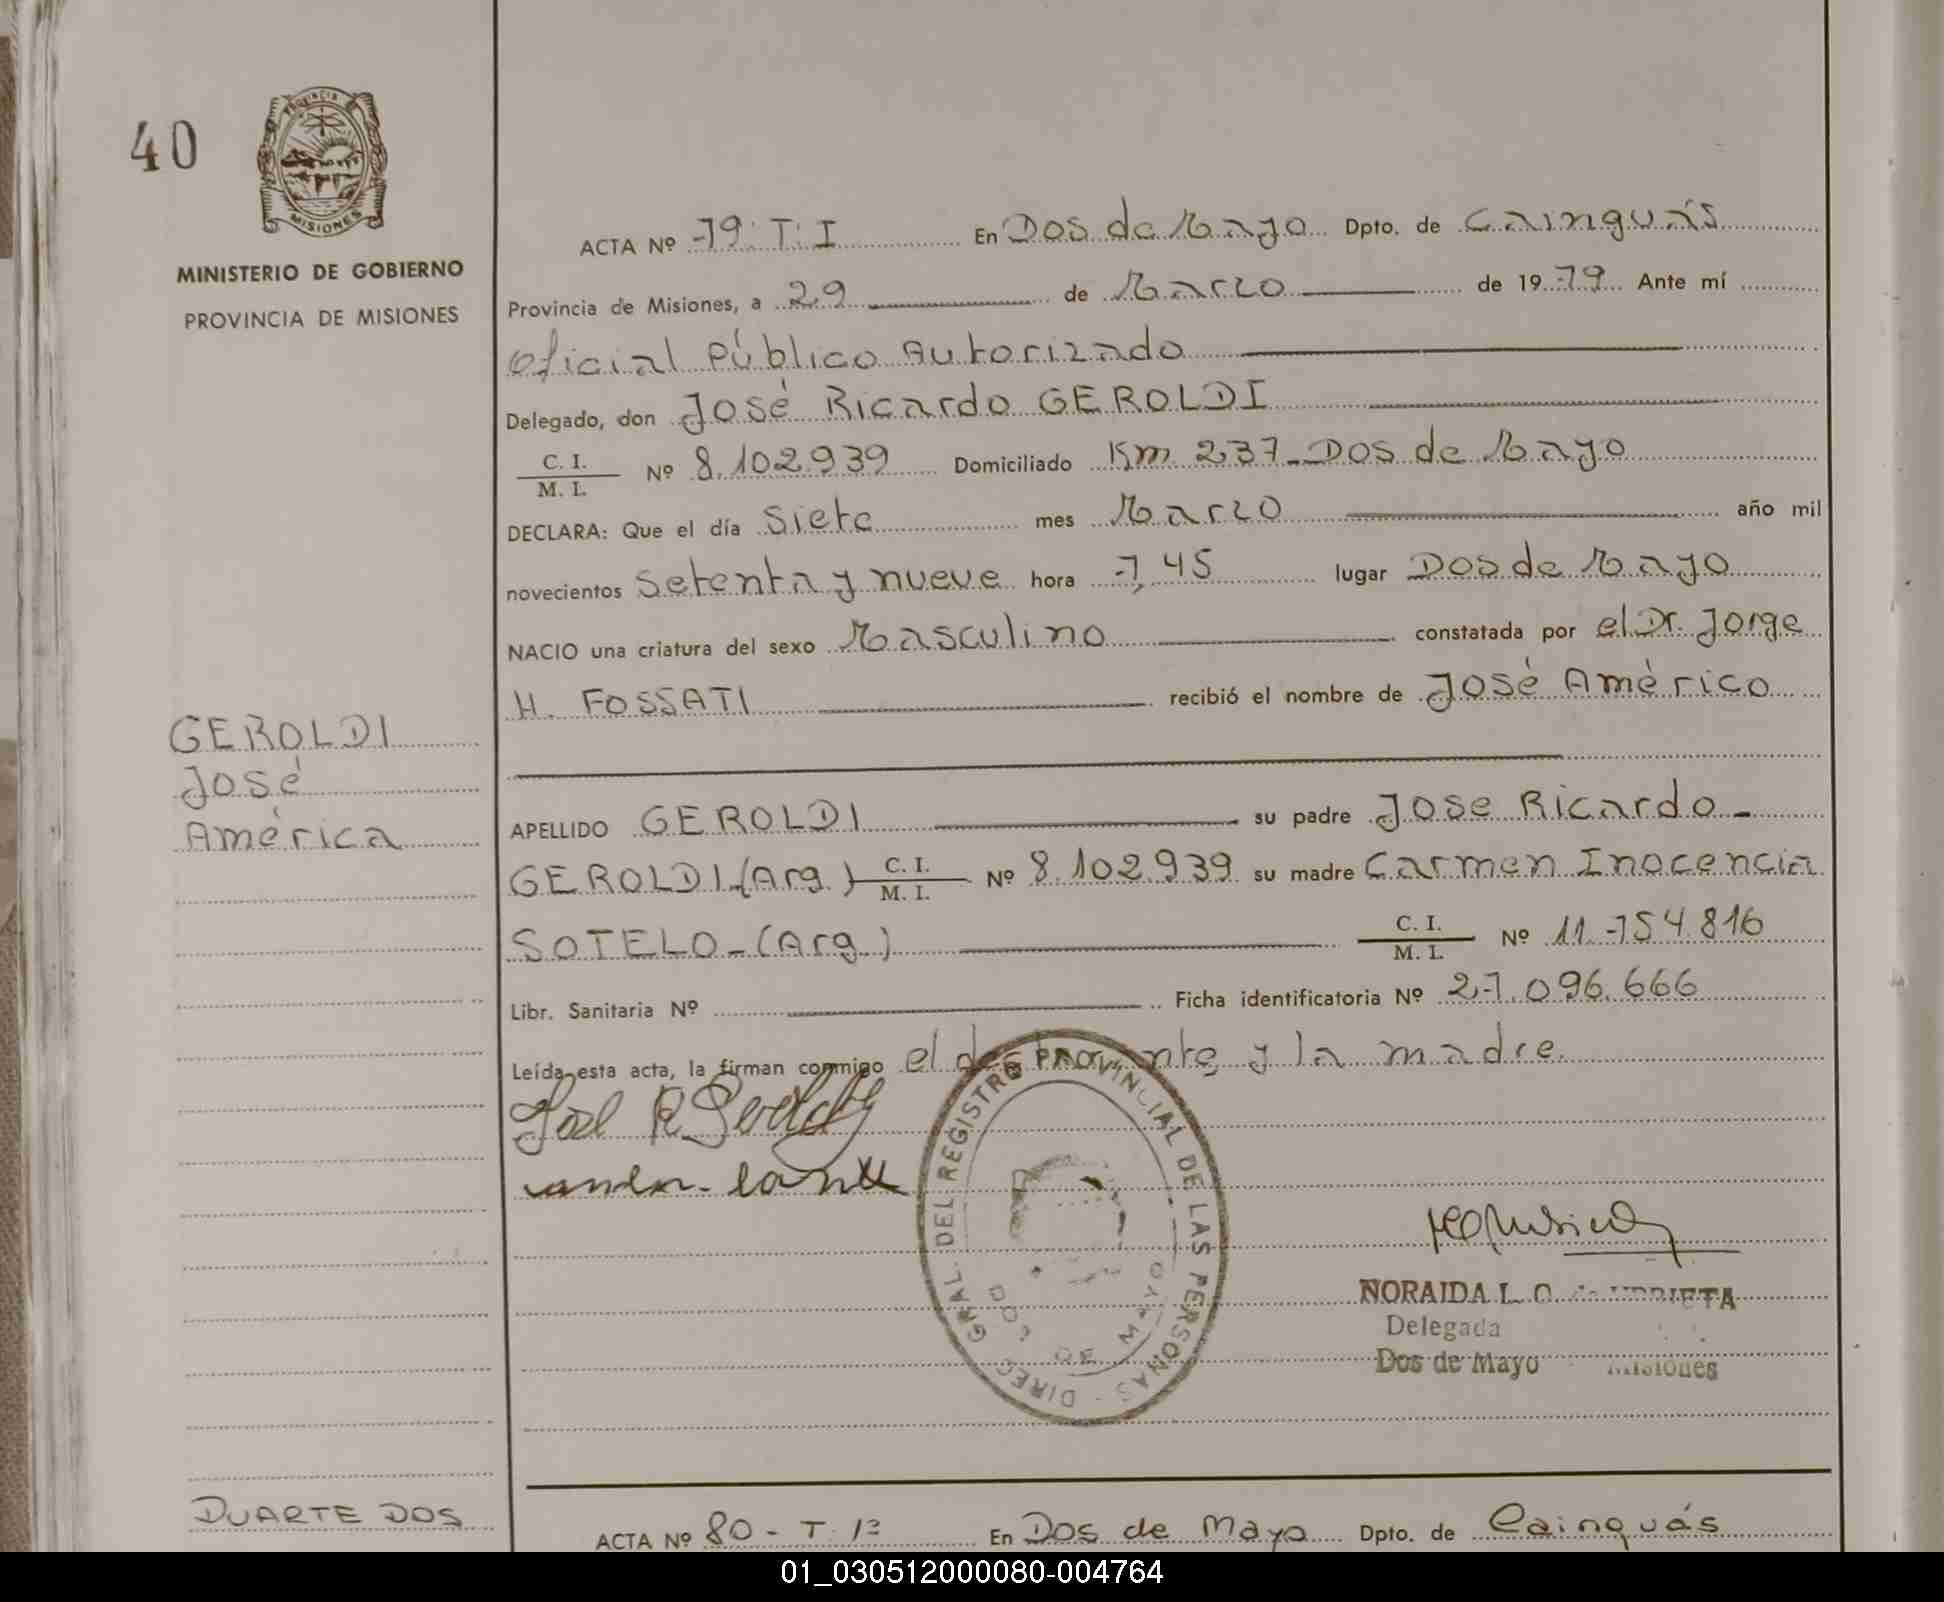 40
PROVINCIA
MISIONES
MINISTERIO DE GOBIERNO
PROVINCIA DE MISIONES
GEROLDI
José
América
DUARTE DOS
ACTA Nº 79. T. I En Dos de Mayo Dpto. de Cainguás
Provincia de Misiones, a 29 de Marzo de 1979 Ante mí
Oficial Público Autorizado
Delegado, don José Ricardo GEROLDI
C. I.
M. I. Nº 8.102.939 Domiciliado Km 237-Dos de Mayo
DECLARA: Que el día Siete mes Marzo año mil
novecientos Setenta y nueve hora 7,45 lugar Dos de Mayo
NACIO una criatura del sexo Masculino constatada por el Dr. Jorge
H. FOSSATI recibió el nombre de José Américo
APELLIDO GEROLDI su padre Jose Ricardo
GEROLDI (Arg.) C. I. M. I. Nº 8.102.939 su madre Carmen Inocencia
SOTELO-(Arg.) C. I. M. I. Nº 11.754.816
Libr. Sanitaria Nº Ficha identificatoria Nº 27.096.666
Leída esta acta, la firman conmigo el y la madre.
DIREC. GRAL. DEL REGISTRO PROVINCIAL DE LAS PERSONAS
DOS DE MAYO
NORAIDA L. O.
Delegada
Dos de Mayo Misiones
ACTA Nº 80 - T. 1º En Dos de Mayo Dpto. de Cainguás
01_030512000080-004764